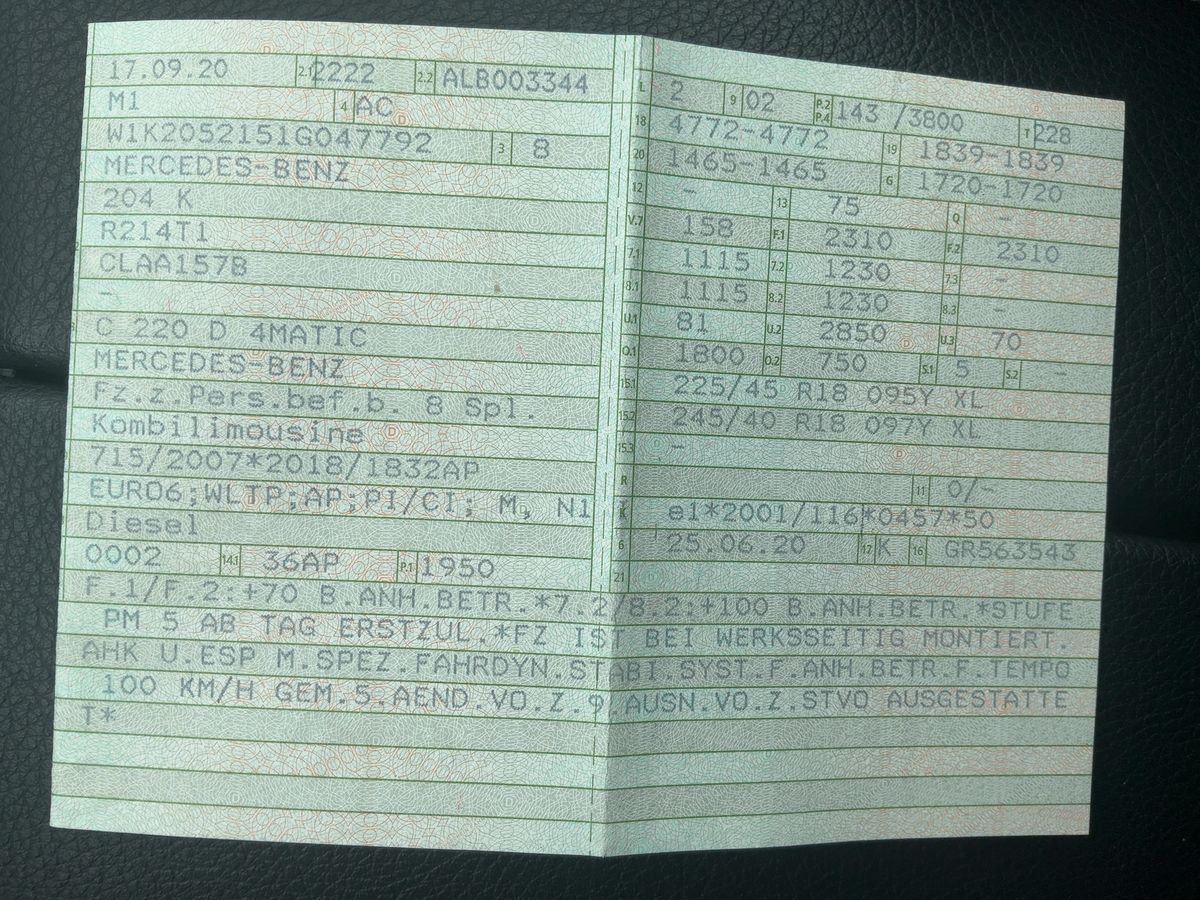 17.09.20 2.1 2222 2.2 ALB003344
M1 4 AC
W1K2052151G047792 3 8
MERCEDES-BENZ
204 K
R214T1
CLAA157B
-
C 220 D 4MATIC
MERCEDES-BENZ
Fz.z.Pers.bef.b. 8 Spl.
Kombilimousine
715/2007*2018/1832AP
EURO6;WLTP;AP;PI/CI; M, N1 I
Diesel
0002 14.1 36AP P.1 1950
L 2 9 02 P.2 P.4 143 /3800 T 228
18 4772-4772 19 1839-1839
20 1465-1465 G 1720-1720
12 - 13 75 Q -
V.7 158 F.1 2310 F.2 2310
7.1 1115 7.2 1230 7.3 -
8.1 1115 8.2 1230 8.3 -
U.1 81 U.2 2850 U.3 70
O.1 1800 O.2 750 S.1 5 S.2 -
15.1 225/45 R18 095Y XL
15.2 245/40 R18 097Y XL
15.3 -
R 11 0/-
K e1*2001/116*0457*50
6 25.06.20 17 K 16 GR563543
21
F.1/F.2:+70 B.ANH.BETR.*7.2/8.2:+100 B.ANH.BETR.*STUFE
PM 5 AB TAG ERSTZUL.*FZ IST BEI WERKSSEITIG MONTIERT.
AHK U.ESP M.SPEZ.FAHRDYN.STABI.SYST.F.ANH.BETR.F.TEMPO
100 KM/H GEM.5.AEND.VO.Z.9.AUSN.VO.Z.STVO AUSGESTATTE
T*